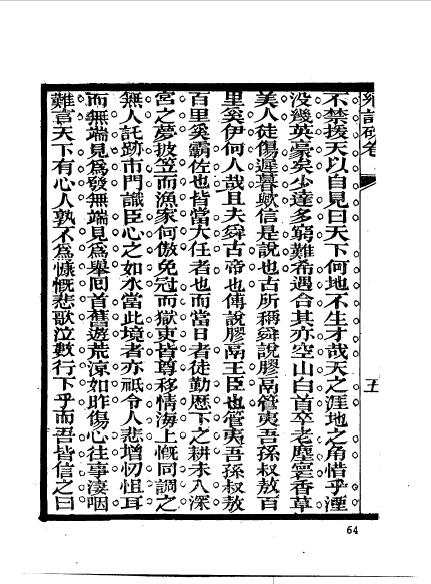 不禁援天以自見曰天下何地不生才哉天之涯地之角惜乎湮
没幾英豪矣少達多窮難希遇合其亦空山白首卒老塵寰香草
美人徒傷遲暮歟信是說也古所稱舜說膠鬲管夷吾孫叔敖百
里奚伊何人哉且夫舜古帝也傅說膠鬲王臣也管夷吾孫叔敖
百里奚霸佐也皆當大任者也而當日者徒勤歷下之耕未入深
宮之夢披笠而漁家何倣免冠而獄吏皆尊移情海上慨同調之
無人託跡市門識臣心之如水當此境者亦祗令人悲增忉怛耳
而無端見爲發無端見爲舉回首舊遊荒涼如昨傷心往事淒咽
難言天下有心人孰不爲慷慨悲歌泣數行下乎而吾皆信之曰
五
64